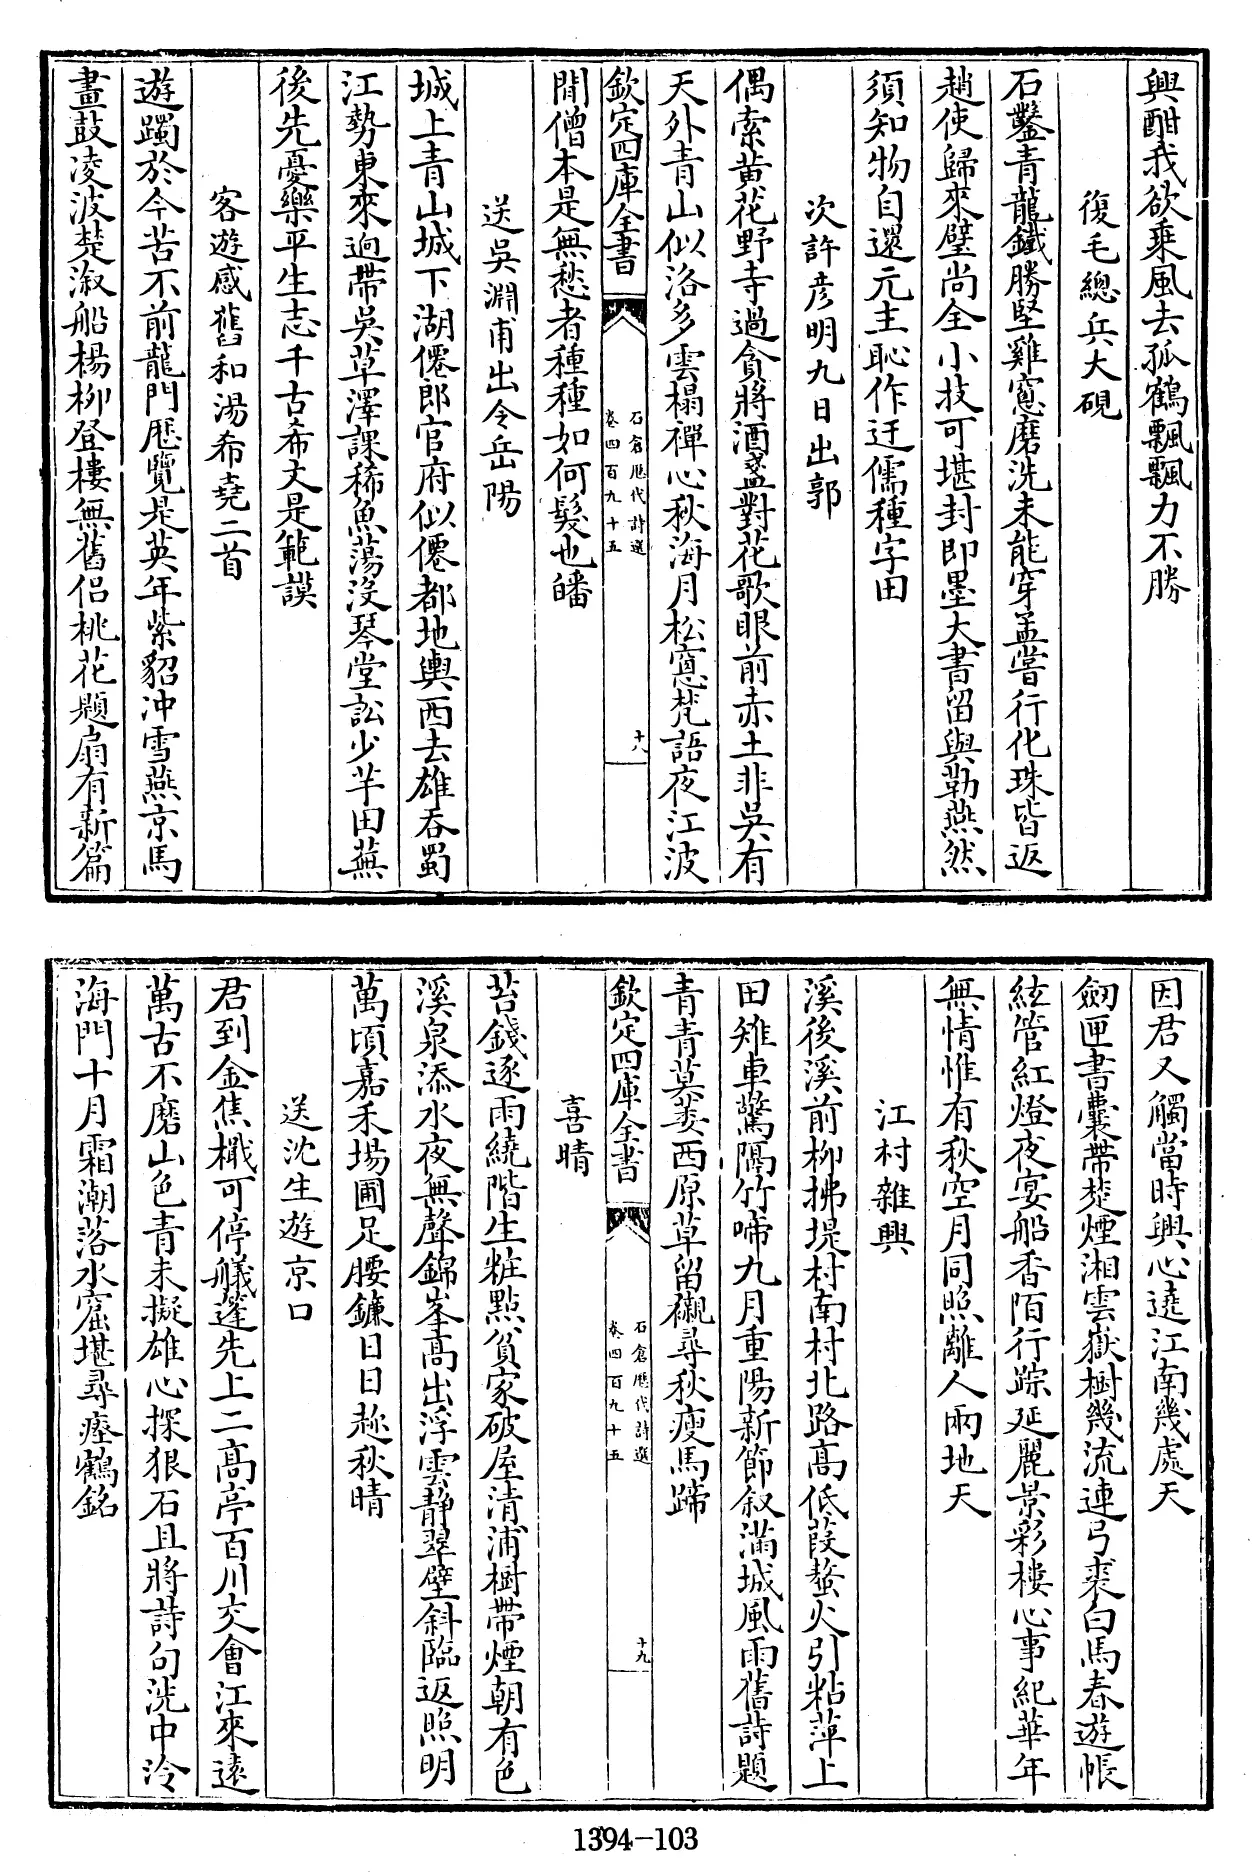 興酣我欲乗風去孤鶴飄飄力不勝
復毛總兵大硯
石鑿青龍鐵勝堅雞窻磨洗未能穿孟嘗行化珠皆返
趙使歸來璧尚全小技可堪封即墨大書留與勒燕然
須知物自還元主恥作迂儒種字田
次許彦明九日出郭
偶索黄花野寺過貪將酒盞對花歌眼前赤土非吳有
天外青山似洛多雲榻禪心秋海月松窻梵語夜江波
欽定四庫全書
石倉歷代詩選
卷四百九十五
十八
閒僧本是無愁者種種如何髮也皤
送吳淵甫出令岳陽
城上青山城下湖僊郎官府似僊都地輿西去雄吞蜀
江勢東來迥帶吳草澤課稀魚蕩沒琴堂訟少芋田蕪
後先憂樂平生志千古希文是範謨
客遊感舊和湯希堯二首
遊躅於今苦不前龍門歷覽是英年紫貂沖雪燕京馬
畫鼓凌波楚溆船楊柳登樓無舊侣桃花題扇有新篇
因君又觸當時興心遶江南幾處天
劒匣書囊帶楚煙湘雲嶽樹幾流連弓裘白馬春遊帳
絃管紅燈夜宴船香陌行踪延麗景彩樓心事紀華年
無情惟有秋空月同照離人兩地天
江村雜興
溪後溪前柳拂堤村南村北路高低葭螯火引粘萍上
田雉車驚隔竹啼九月重陽新節叙滿城風雨舊詩題
青青莫萎西原草留襯尋秋瘦馬蹄
欽定四庫全書
石倉歷代詩選
卷四百九十五
十九
喜晴
苔錢逐雨繞階生粧點貧家破屋清浦樹帶煙朝有色
溪泉添水夜無聲錦峯高出浮雲靜翠壁斜臨返照明
萬頃嘉禾場圃足腰鐮日日趂秋晴
送沈生遊京口
君到金焦檝可停艤篷先上二高亭百川交會江來遠
萬古不磨山色青未擬雄心探狠石且將詩句洗中泠
海門十月霜潮落水窟堪尋瘞鶴銘
1394-103